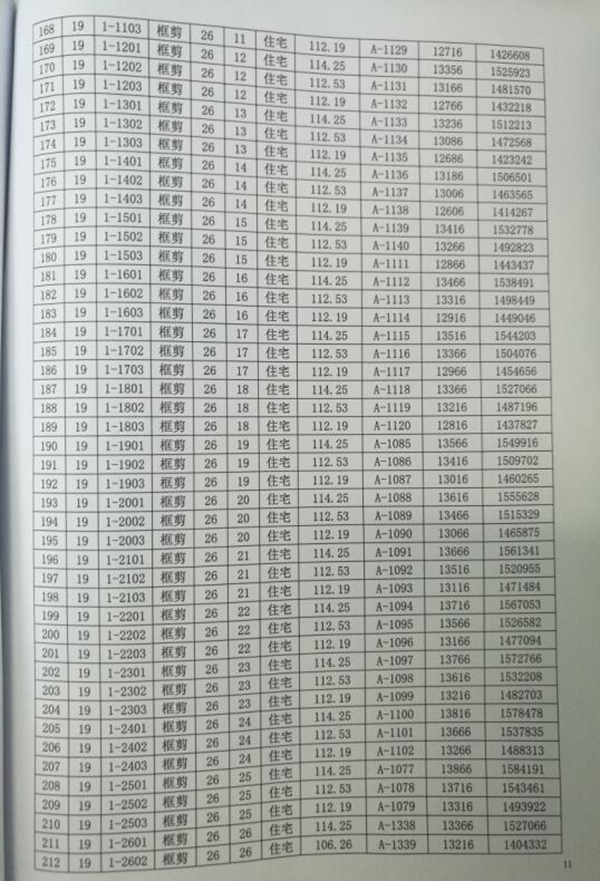 168 19 1-1103 框剪 26 11 住宅 112.19 A-1129 12716 1426608
169 19 1-1201 框剪 26 12 住宅 114.25 A-1130 13356 1525923
170 19 1-1202 框剪 26 12 住宅 112.53 A-1131 13166 1481570
171 19 1-1203 框剪 26 12 住宅 112.19 A-1132 12766 1432218
172 19 1-1301 框剪 26 13 住宅 114.25 A-1133 13236 1512213
173 19 1-1302 框剪 26 13 住宅 112.53 A-1134 13086 1472568
174 19 1-1303 框剪 26 13 住宅 112.19 A-1135 12686 1423242
175 19 1-1401 框剪 26 14 住宅 114.25 A-1136 13186 1506501
176 19 1-1402 框剪 26 14 住宅 112.53 A-1137 13006 1463565
177 19 1-1403 框剪 26 14 住宅 112.19 A-1138 12606 1414267
178 19 1-1501 框剪 26 15 住宅 114.25 A-1139 13416 1532778
179 19 1-1502 框剪 26 15 住宅 112.53 A-1140 13266 1492823
180 19 1-1503 框剪 26 15 住宅 112.19 A-1111 12866 1443437
181 19 1-1601 框剪 26 16 住宅 114.25 A-1112 13466 1538491
182 19 1-1602 框剪 26 16 住宅 112.53 A-1113 13316 1498449
183 19 1-1603 框剪 26 16 住宅 112.19 A-1114 12916 1449046
184 19 1-1701 框剪 26 17 住宅 114.25 A-1115 13516 1544203
185 19 1-1702 框剪 26 17 住宅 112.53 A-1116 13366 1504076
186 19 1-1703 框剪 26 17 住宅 112.19 A-1117 12966 1454656
187 19 1-1801 框剪 26 18 住宅 114.25 A-1118 13366 1527066
188 19 1-1802 框剪 26 18 住宅 112.53 A-1119 13216 1487196
189 19 1-1803 框剪 26 18 住宅 112.19 A-1120 12816 1437827
190 19 1-1901 框剪 26 19 住宅 114.25 A-1085 13566 1549916
191 19 1-1902 框剪 26 19 住宅 112.53 A-1086 13416 1509702
192 19 1-1903 框剪 26 19 住宅 112.19 A-1087 13016 1460265
193 19 1-2001 框剪 26 20 住宅 114.25 A-1088 13616 1555628
194 19 1-2002 框剪 26 20 住宅 112.53 A-1089 13466 1515329
195 19 1-2003 框剪 26 20 住宅 112.19 A-1090 13066 1465875
196 19 1-2101 框剪 26 21 住宅 114.25 A-1091 13666 1561341
197 19 1-2102 框剪 26 21 住宅 112.53 A-1092 13516 1520955
198 19 1-2103 框剪 26 21 住宅 112.19 A-1093 13116 1471484
199 19 1-2201 框剪 26 22 住宅 114.25 A-1094 13716 1567053
200 19 1-2202 框剪 26 22 住宅 112.53 A-1095 13566 1526582
201 19 1-2203 框剪 26 22 住宅 112.19 A-1096 13166 1477094
202 19 1-2301 框剪 26 23 住宅 114.25 A-1097 13766 1572766
203 19 1-2302 框剪 26 23 住宅 112.53 A-1098 13616 1532208
204 19 1-2303 框剪 26 23 住宅 112.19 A-1099 13216 1482703
205 19 1-2401 框剪 26 24 住宅 114.25 A-1100 13816 1578478
206 19 1-2402 框剪 26 24 住宅 112.53 A-1101 13666 1537835
207 19 1-2403 框剪 26 24 住宅 112.19 A-1102 13266 1488313
208 19 1-2501 框剪 26 25 住宅 114.25 A-1077 13866 1584191
209 19 1-2502 框剪 26 25 住宅 112.53 A-1078 13716 1543461
210 19 1-2503 框剪 26 25 住宅 112.19 A-1079 13316 1493922
211 19 1-2601 框剪 26 26 住宅 114.25 A-1338 13366 1527066
212 19 1-2602 框剪 26 26 住宅 106.26 A-1339 13216 1404332
11